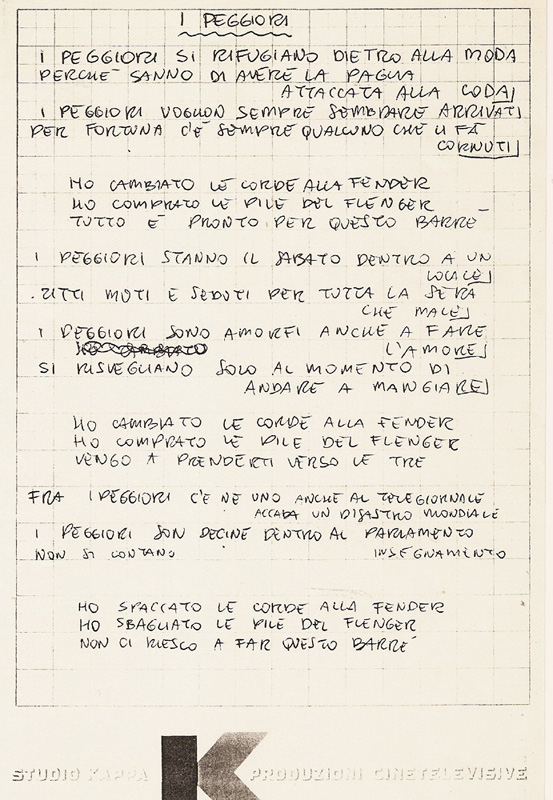 I PEGGIORI
I PEGGIORI SI RIFUGIANO DIETRO ALLA MODA
PERCHE' SANNO DI AVERE LA PAGLIA
ATTACCATA ALLA CODA
I PEGGIORI VOGLION SEMPRE SEMBRARE ARRIVATI
PER FORTUNA C'È SEMPRE QUALCUNO CHE LI FA
CORNUTI
HO CAMBIATO LE CORDE ALLA FENDER
HO COMPRATO LE PILE DEL FLENGER
TUTTO E' PRONTO PER QUESTO BARRE'
I PEGGIORI STANNO IL SABATO DENTRO A UN
LOCALE
ZITTI MUTI E SEDUTI PER TUTTA LA SERA
CHE MALE
I PEGGIORI SONO AMORFI ANCHE A FARE
L'AMORE
SI RISVEGLIANO SOLO AL MOMENTO DI
ANDARE A MANGIARE
HO CAMBIATO LE CORDE ALLA FENDER
HO COMPRATO LE PILE DEL FLENGER
VENGO A PRENDERTI VERSO LE TRE
FRA I PEGGIORI C'È NE UNO ANCHE AL TELEGIORNALE
ACCADA UN DISASTRO MONDIALE
I PEGGIORI SON DECINE DENTRO AL PARLAMENTO
NON SI CONTANO INSEGNAMENTO
HO SPACCATO LE CORDE ALLA FENDER
HO SBAGLIATO LE PILE DEL FLENGER
NON CI RIESCO A FAR QUESTO BARRE'
STUDIO KAPPA K PRODUZIONI CINETELEVISIVE